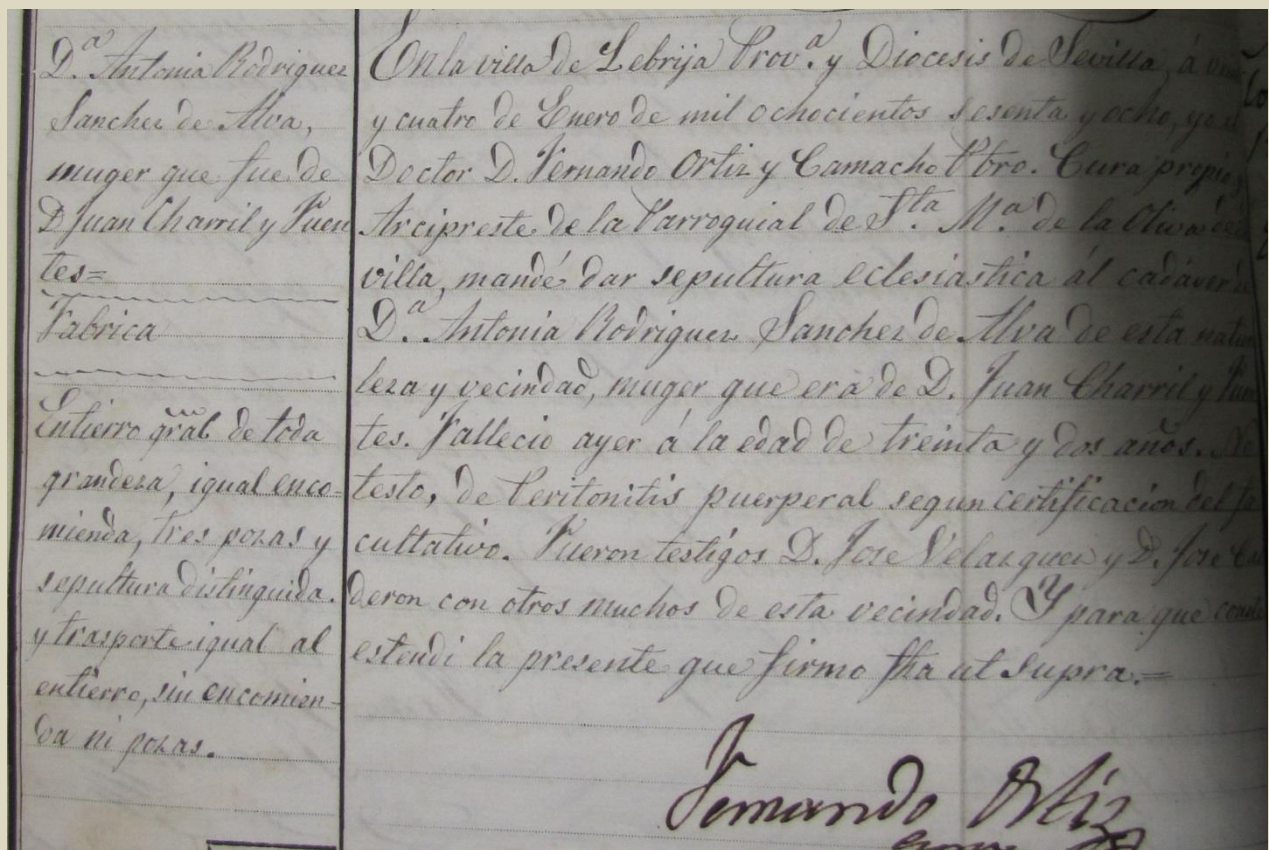 D.ª Antonia Rodriguez
Sanchez de Alva,
muger que fue de
D Juan Charril y Fuen
tes=
Fabrica
Entierro gral de toda
grandeza, igual enco-
mienda, tres pozas y
sepultura distinguida.
y trasporte igual al
entierro, sin encomien-
da ni pozas.
En la villa de Lebrija Prov.ª y Diocesis de Sevilla, á
y cuatro de Enero de mil ochocientos sesenta y ocho, yo
Doctor D. Fernando Ortiz y Camacho Pbro. Cura propio y
Arcipreste de la Parroquial de Sta. M.ª de la Oliva
villa, mandé dar sepultura eclesiastica ál cadáver
D.ª Antonia Rodriguez Sanchez de Alva de esta natu
leza y vecindad, muger que era de D. Juan Charril y Fuen
tes. Falleció ayer á la edad de treinta y dos años.
testó, de Peritonitis puerperal segun certificacion del fa
cultativo. Fueron testigos D. José Velazquez y D. José
deron con otros muchos de esta vecindad. Y para que
estendi la presente que firmo fha ut supra.=
Fernando Ortiz